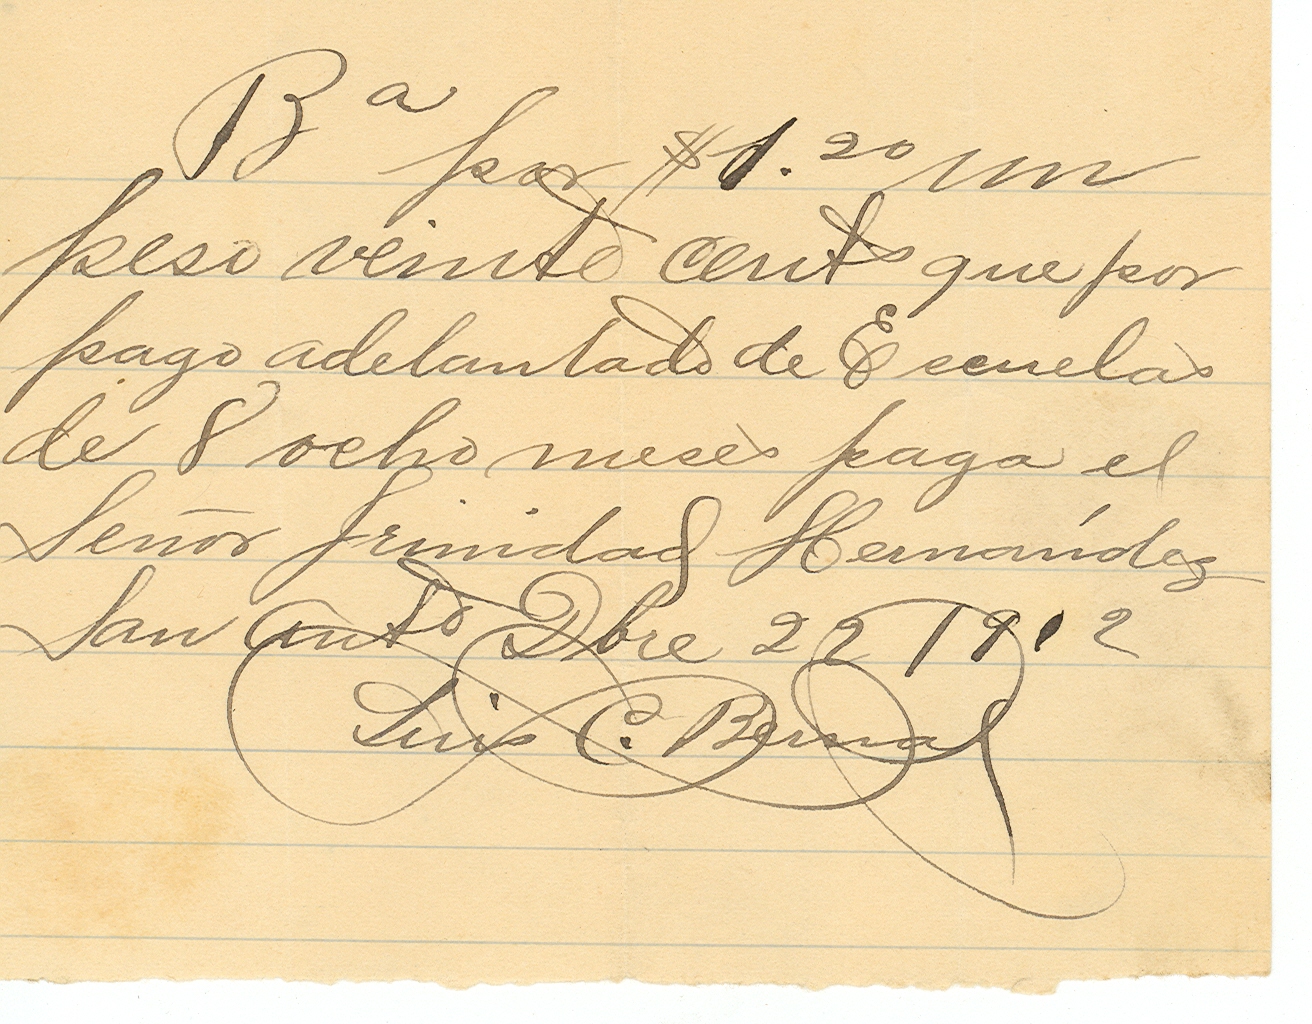 Ba por $1.20 un
peso veinte cents que por
pago adelantado de Escuelas
de 8 ocho meses paga el
Señor Trinidad Hernández
San Anto Dbre 22 1912
Luis C. Bernal